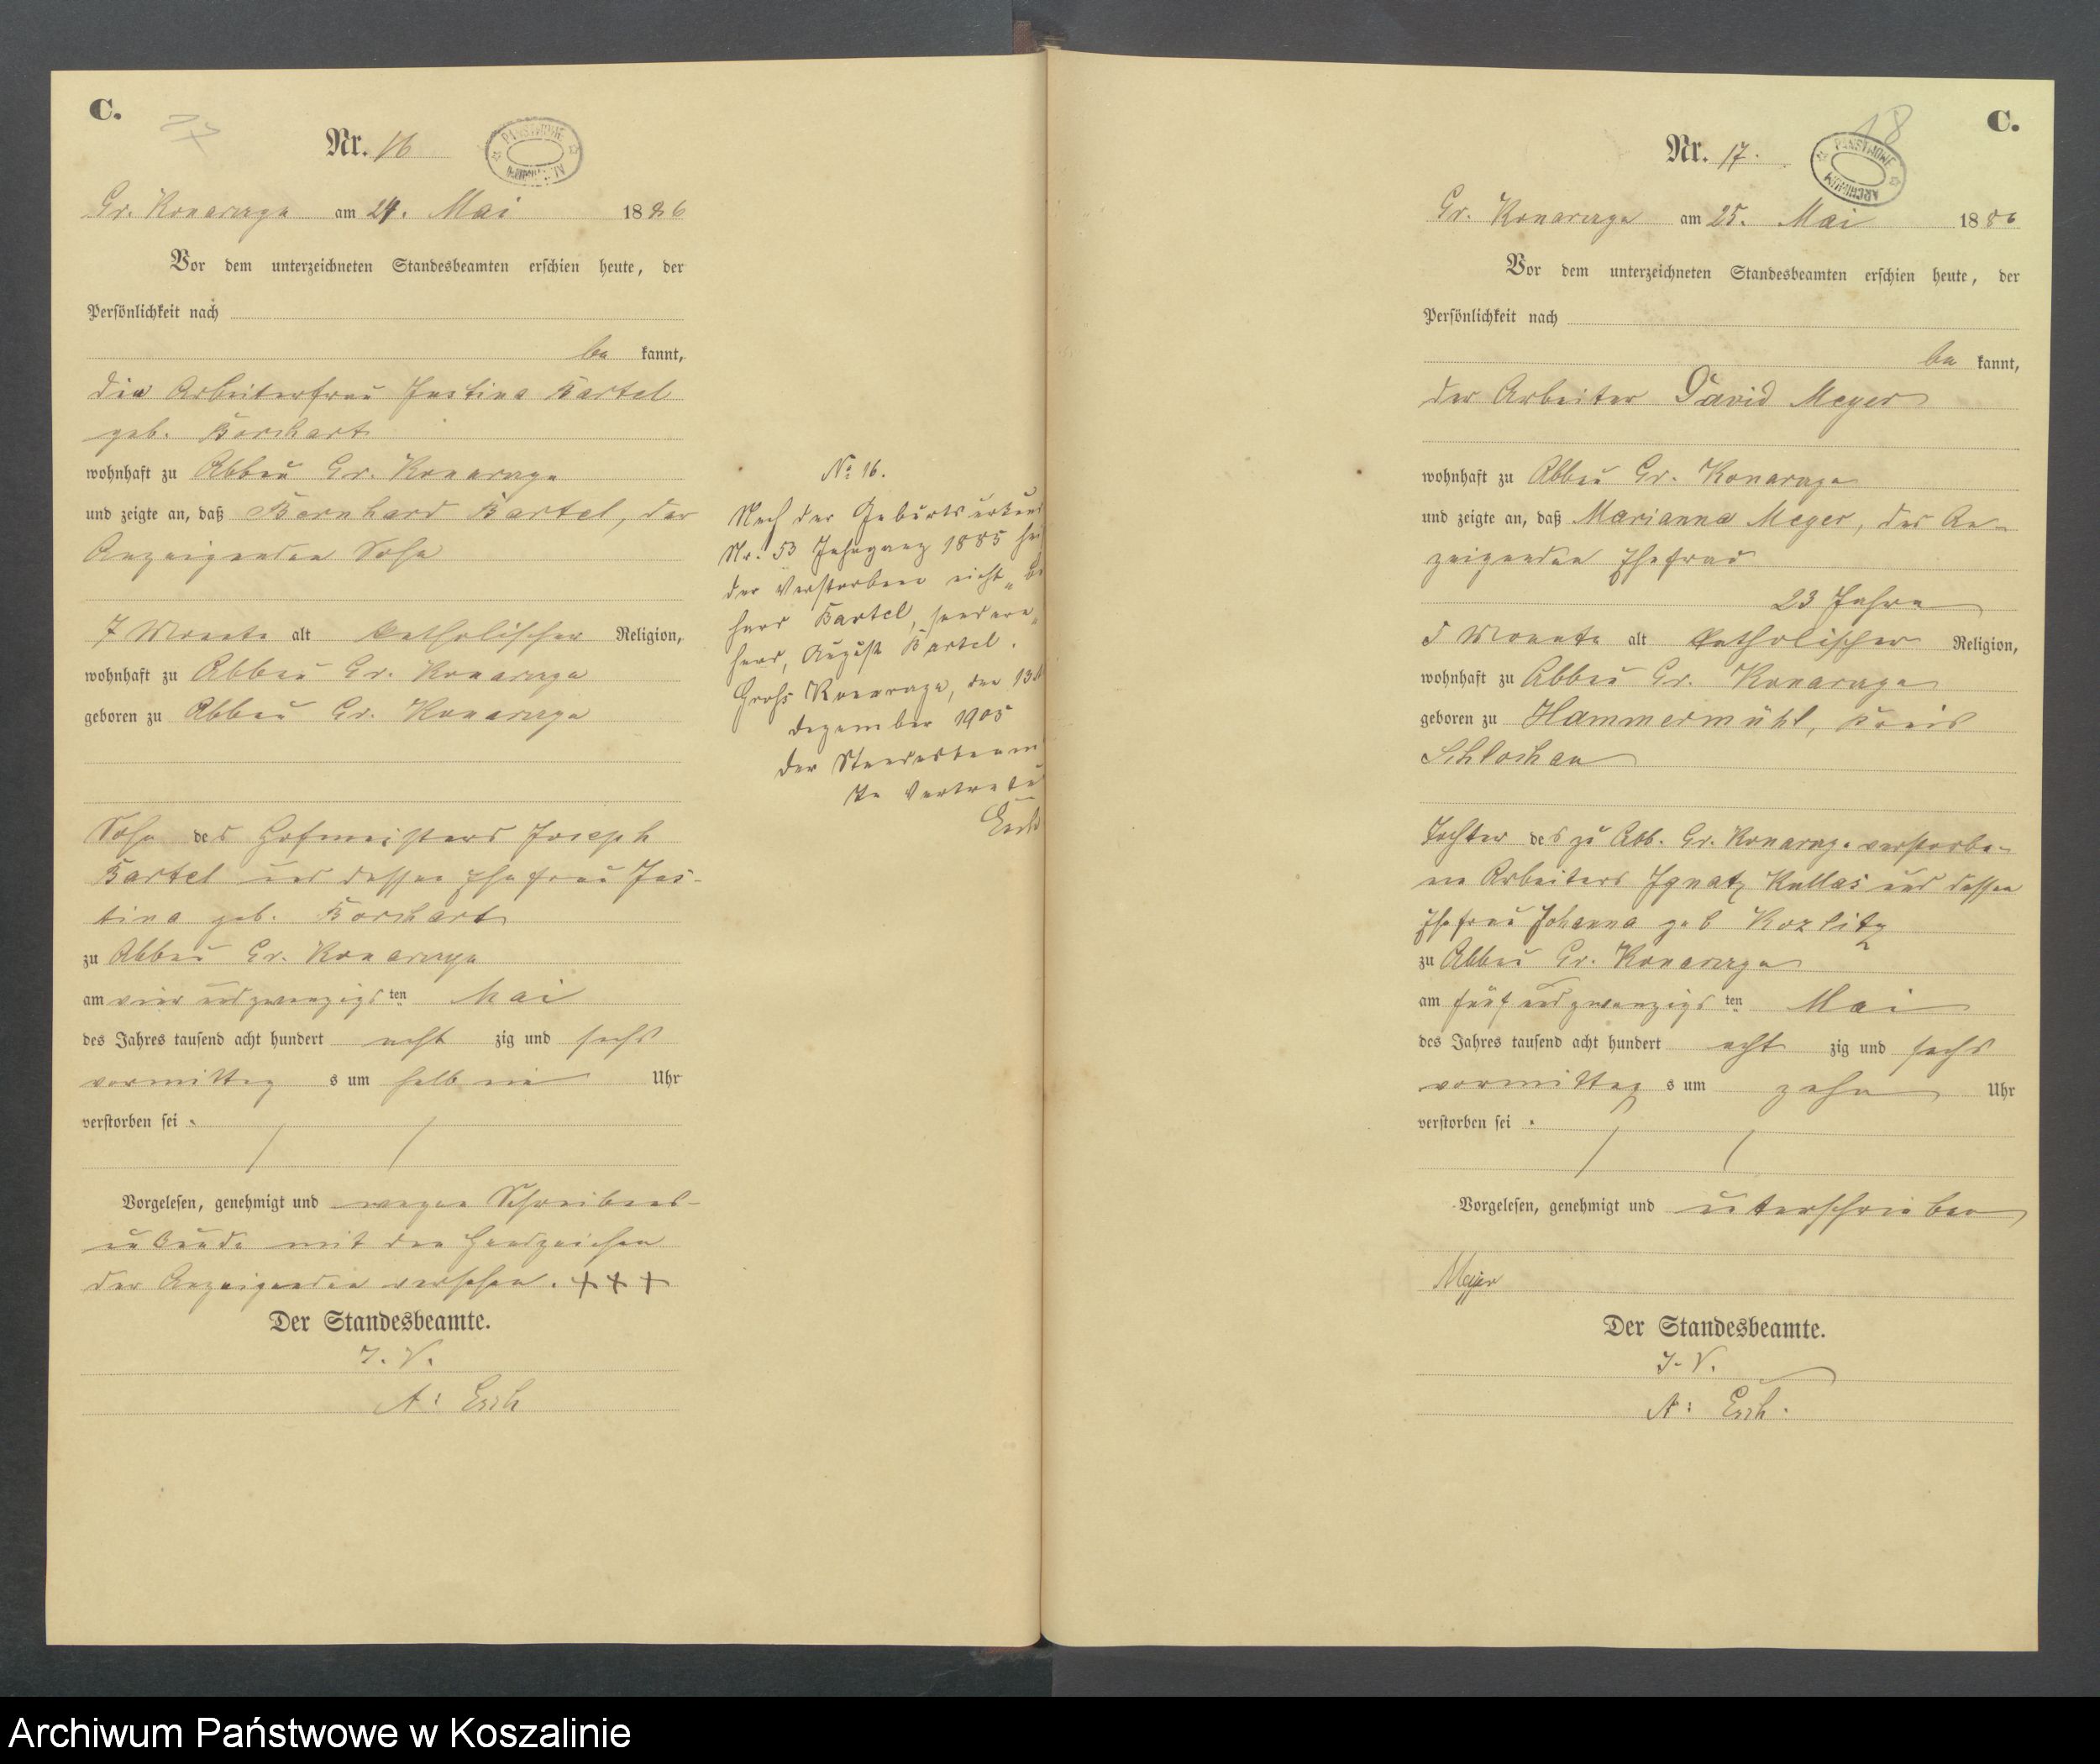 C.
Nr. 16
PAŃSTWOWE ARCHIWUM
Gr. Konarczyn am 24. Mai 1886
Vor dem unterzeichneten Standesbeamten erschien heute, der
Persönlichkeit nach
be kannt,
die Arbeiterfrau Justina Bartel
geb. Borchart
wohnhaft zu Abbau Gr. Konarczyn
und zeigte an, daß Bernhard Bartel, der
Anzeigenden Sohn
7 Monate alt katholischer Religion,
wohnhaft zu Abbau Gr. Konarczyn
geboren zu Abbau Gr. Konarczyn
Sohn des Hofmeisters Joseph
Bartel und dessen Ehefrau Jus-
tina geb. Borchart
zu Abbau Gr. Konarczyn
am vier und zwanzigs ten Mai
des Jahres tausend acht hundert acht zig und sechs
vormittag s um halb ein Uhr
verstorben sei.
Vorgelesen, genehmigt und wegen Schreibens-
unkunde mit den Handzeichen
der Anzeigenden versehen. +++
Der Standesbeamte.
I. V.
A: Esch
No 16.
Nach der Geburtsurkund
Nr. 53 Jahrgang 1885
der Verstorbene nicht
hard Bartel, sondern
hard, August Bartel.
Groß Konarczyn, den 13
Dezember 1905
Der Standesbeam
In Vertretu
Esch
C.
18
Nr. 17.
PAŃSTWOWE ARCHIWUM
Gr. Konarczyn am 25. Mai 1886
Vor dem unterzeichneten Standesbeamten erschien heute, der
Persönlichkeit nach
be kannt,
der Arbeiter David Meyer
wohnhaft zu Abbau Gr. Konarczyn
und zeigte an, daß Marianna Meyer, des An-
zeigenden Ehefrau
23 Jahre
5 Monate alt katholischer Religion,
wohnhaft zu Abbau Gr. Konarczyn
geboren zu Hammermühl, Kreis
Schlochau
Tochter des zu Abb. Gr. Konarcz. verstorbe-
nen Arbeiters Ignatz Kullas und dessen
Ehefrau Johanna geb Kozlitz
zu Abbau Gr. Konarczyn
am fünf und zwanzigs ten Mai
des Jahres tausend acht hundert acht zig und sechs
vormittag s um zehn Uhr
verstorben sei.
Vorgelesen, genehmigt und unterschrieben
Meyer
Der Standesbeamte.
I. V.
A: Esch.
Archiwum Państwowe w Koszalinie